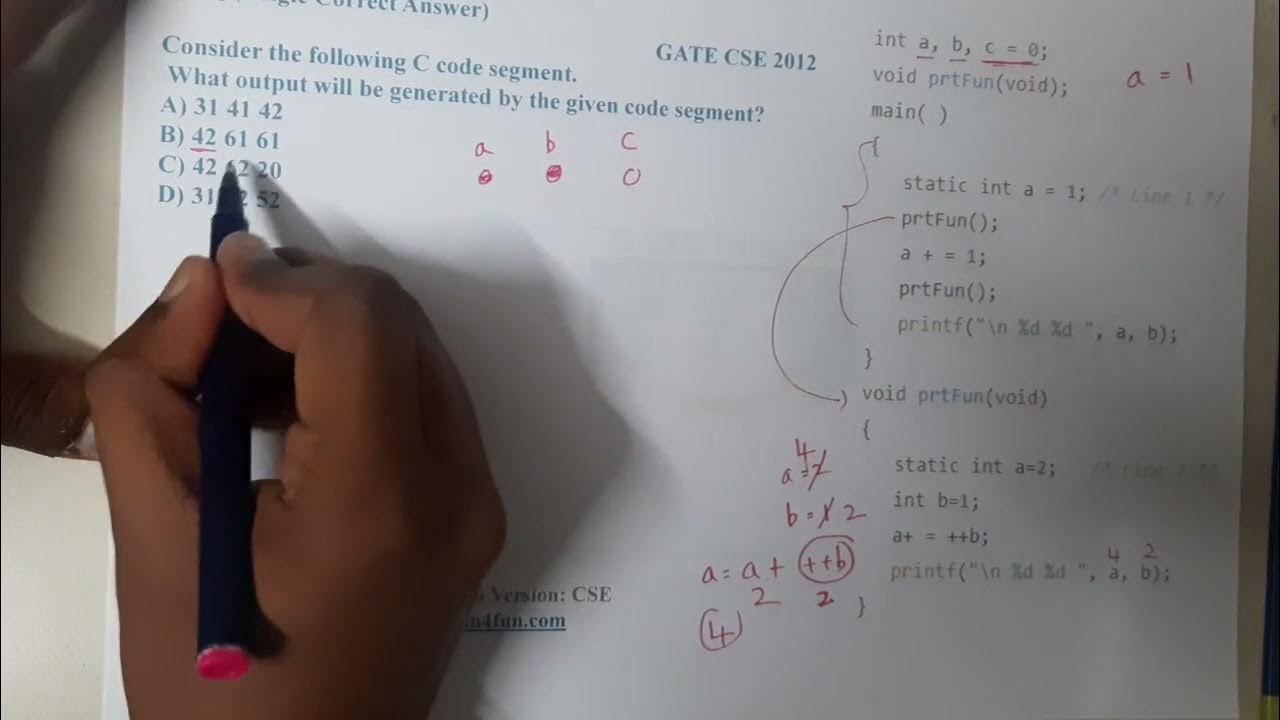 Correct Answer)
Consider the following C code segment.
GATE CSE 2012
What output will be generated by the given code segment?
A) 31 41 42
B) 42 61 61
C) 42 62 20
D) 31 52
a b c
0
int a, b, c = 0;
void prtFun(void);
a = 1
main( )
{
static int a = 1; /* Line 1 */
prtFun();
a + = 1;
prtFun();
printf("\n %d %d ", a, b);
}
void prtFun(void)
{
static int a=2; /* Line 2 */
int b=1;
a+ = ++b;
printf("\n %d %d ", a, b);
}
4 2
4
a = 2
b = 1 2
a = a + ++b
2 2
4
Version: CSE
n4fun.com